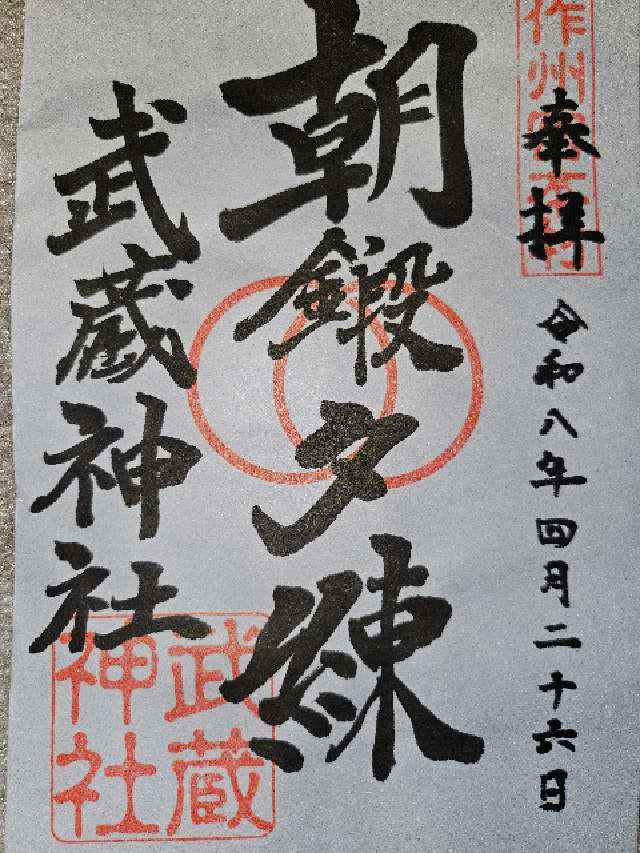 作州宮本村
奉拝
令和八年四月二十六日
朝鍛夕練
武蔵神社
武蔵
神社